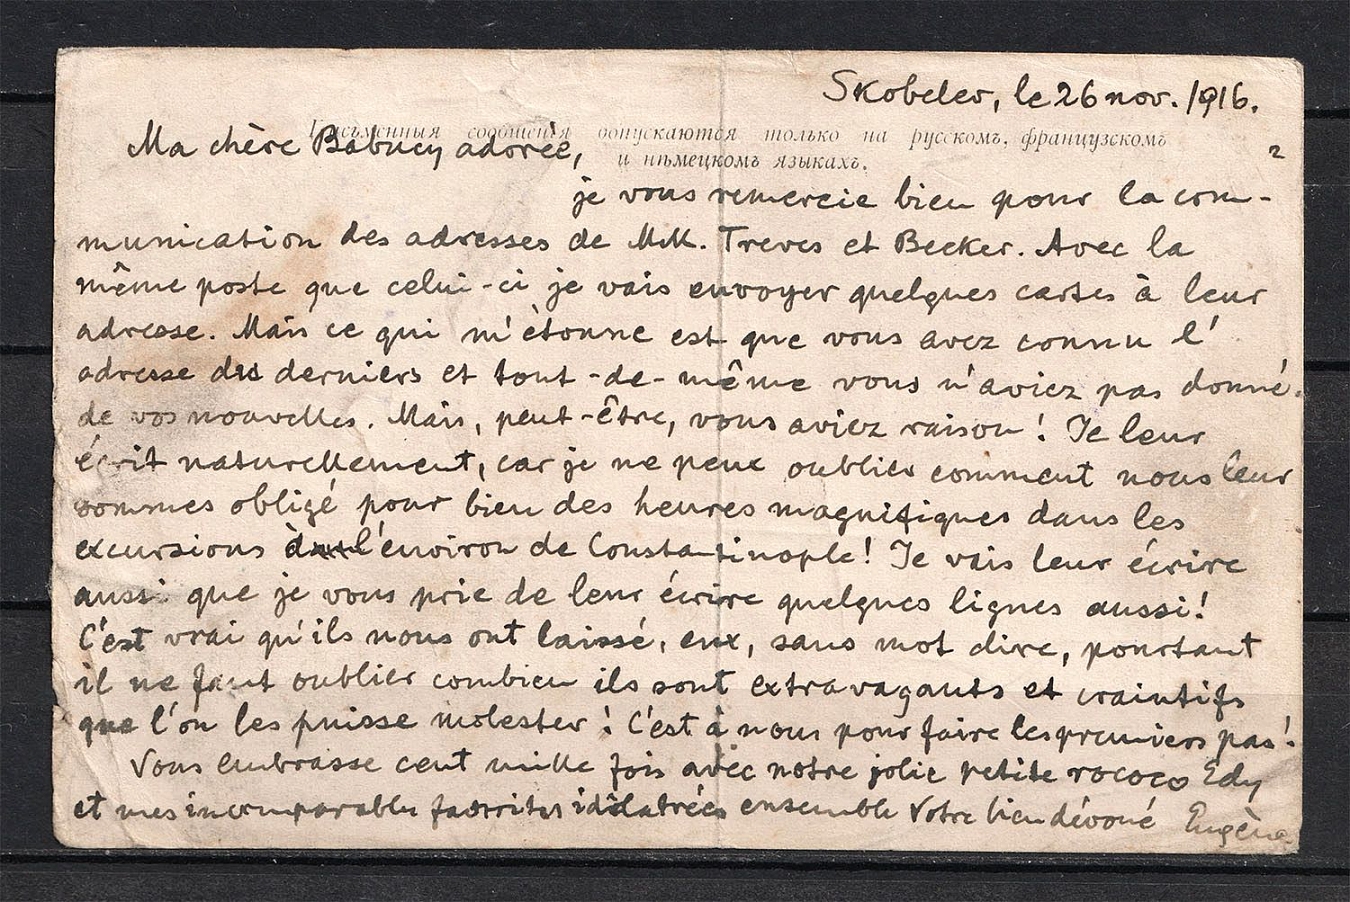 Skobelev, le 26 nov. 1916.
Письменныя сообщенія допускаются только на русскомъ, французскомъ
и нѣмецкомъ языкахъ.
2
Ma chère Babucy adorée,
je vous remercie bien pour la com-
munication des adresses de MM. Treves et Becker. Avec la
même poste que celui-ci je vais envoyer quelques cartes à leur
adresse. Mais ce qui m'étonne est que vous avez connu l'
adresse des derniers et tout-de-même vous n'aviez pas donné
de vos nouvelles. Mais, peut-être, vous aviez raison! Je leur
écrit naturellement, car je ne peux oublier comment nous leur
sommes obligé pour bien des heures magnifiques dans les
excursions à l'environ de Constantinople! Je vais leur écrire
aussi que je vous prie de leur écrire quelques lignes aussi!
C'est vrai qu'ils nous ont laissé, eux, sans mot dire, pourtant
il ne faut oublier combien ils sont extravagants et craintifs
que l'on les puisse molester! C'est à nous pour faire les premiers pas!
Vous embrasse cent mille fois avec notre jolie petite rococo Edy
et mes incomparables favorites idolatrées ensemble Votre bien dévoué Eugène